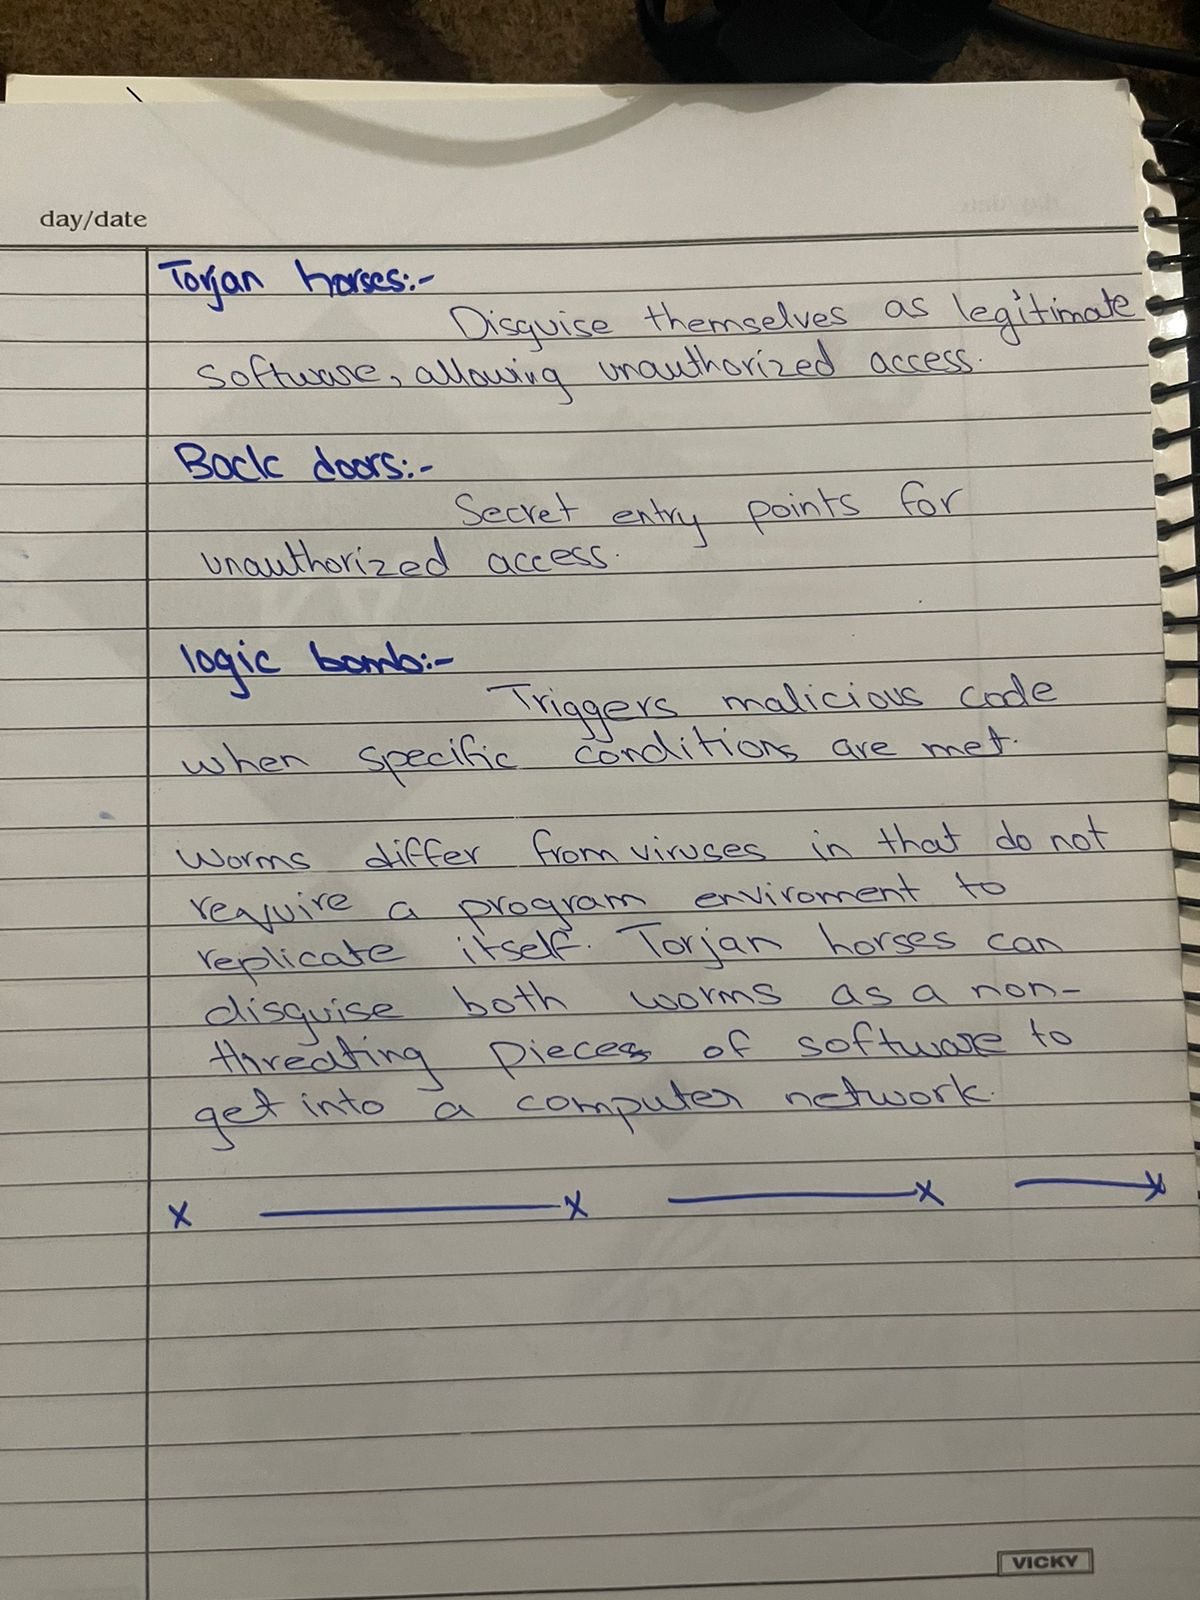 day/date
Torjan horses:-
Disguise themselves as legitimate
software, allowing unauthorized access.
Back doors:-
Secret entry points for
unauthorized access.
logic bomb:-
Triggers malicious code
when specific conditions are met.
worms differ from viruses in that do not
require a program enviroment to
replicate itself. Torjan horses can
disguise both worms as a non-
threating pieces of software to
get into a computer network.
x x x x
VICKY